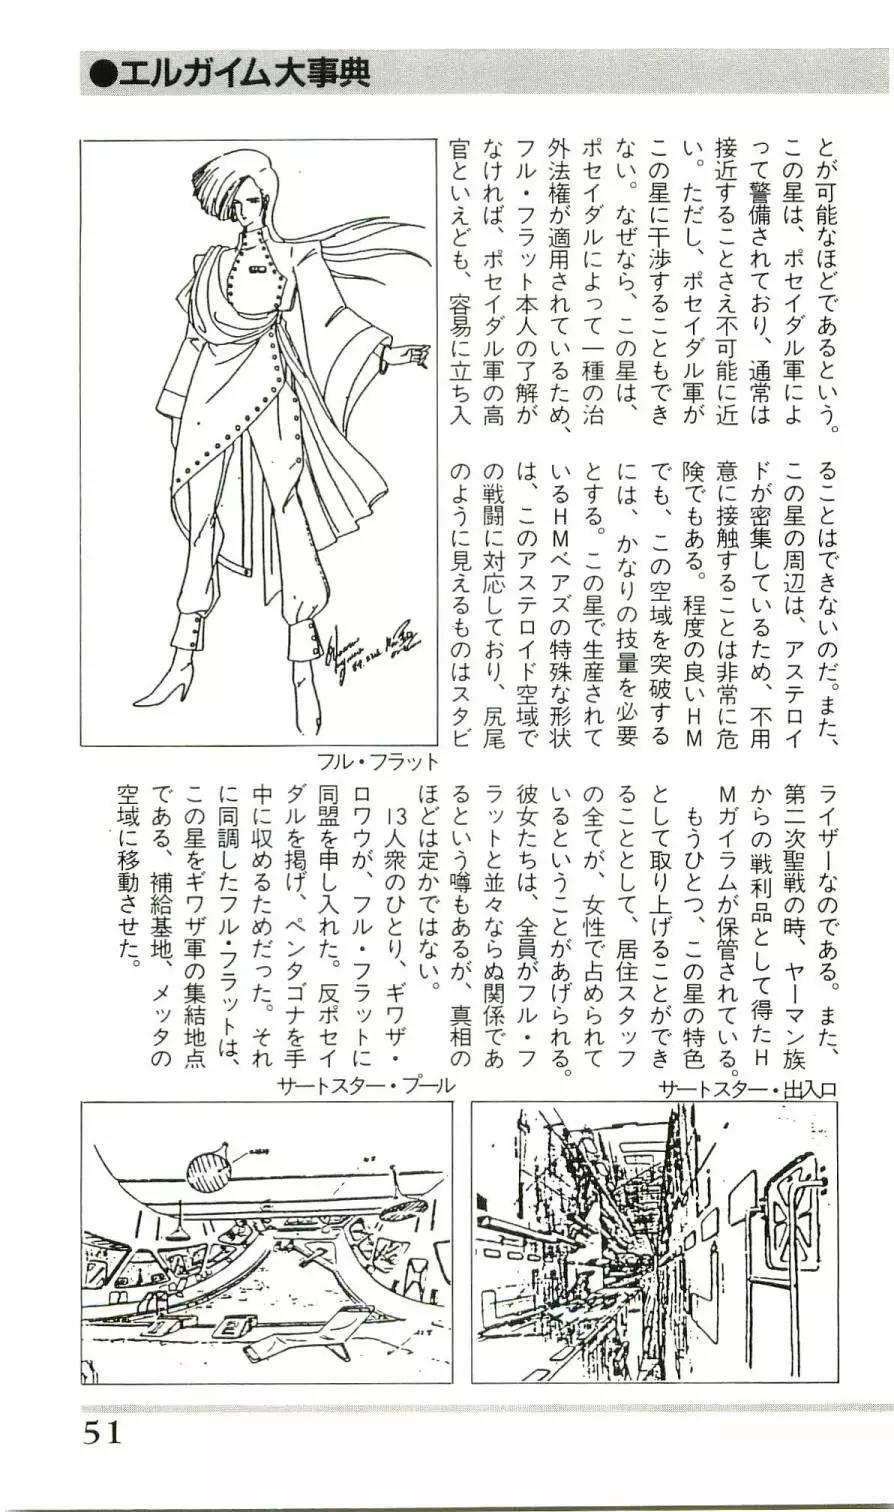 ●エルガイム大事典
とが可能なほどであるという。
この星は、ポセイダル軍によ
って警備されており、通常は
接近することさえ不可能に近
い。ただし、ポセイダル軍が
この星に干渉することもでき
ない。なぜなら、この星は、
ポセイダルによって一種の治
外法権が適用されているため、
フル・フラット本人の了解が
なければ、ポセイダル軍の高
官といえども、容易に立ち入
ることはできないのだ。また、
この星の周辺は、アステロイ
ドが密集しているため、不用
意に接触することは非常に危
険でもある。程度の良いHM
でも、この空域を突破する
には、かなりの技量を必要
とする。この星で生産されて
いるHMベアズの特殊な形状
は、このアステロイド空域で
の戦闘に対応しており、尻尾
のように見えるものはスタビ
フル・フラット
ライザーなのである。また、
第二次聖戦の時、ヤーマン族
からの戦利品として得たH
Mガイラムが保管されている。
もうひとつ、この星の特色
として取り上げることができ
ることとして、居住スタッフ
の全てが、女性で占められて
いるということがあげられる。
彼女たちは、全員がフル・フ
ラットと並々ならぬ関係であ
るという噂もあるが、真相の
ほどは定かではない。
13人衆のひとり、ギワザ・
ロワウが、フル・フラットに
同盟を申し入れた。反ポセイ
ダルを掲げ、ペンタゴナを手
中に収めるためだった。それ
に同調したフル・フラットは、
この星をギワザ軍の集結地点
である、補給基地、メッタの
空域に移動させた。
サートスター・出入口
サートスター・プール
51